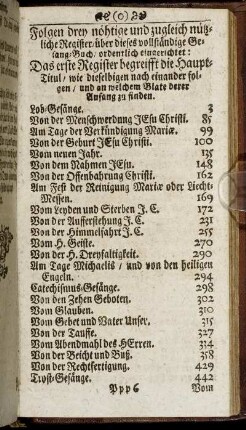 (o)
Folgen drey nöhtige und zugleich nütz-
liche Register/über dieses vollständige Ge-
sang-Buch/ ordentlich eingerichtet:
Das erste Register begreifft die Haupt-
Titul/ wie dieselbigen nach einander fol-
gen/ und an welchem Blate derer
Anfang zu finden.
Lob-Gesänge. 3
Von der Menschwerdung JEsu Christi. 85
Am Tage der Verkündigung Mariæ. 99
Von der Geburt JEsu Christi. 100
Vom neuen Jahr. 135
Von dem Nahmen JEsu. 148
Von der Offenbahrung Christi. 162
Am Fest der Reinigung Mariæ oder Liecht-
Messen. 169
Vom Leyden und Sterben J. C. 172
Von der Auferstehung J. C. 231
Von der Himmelfahrt J. C. 255
Vom H. Geiste. 270
Von der H. Dreyfaltigkeit. 290
Am Tage Michaelis/ und von den heiligen
Engeln. 294
Catechismus-Gesänge. 298
Von den Zehen Geboten. 302
Vom Glauben. 310
Vom Gebet und Vater Unser. 315
Von der Tauffe. 327
Vom Abendmahl des HErren. 314
Von der Beicht und Buß. 358
Von der Rechtfertigung. 429
Trost-Gesänge. 442
Ppp 6 Vom